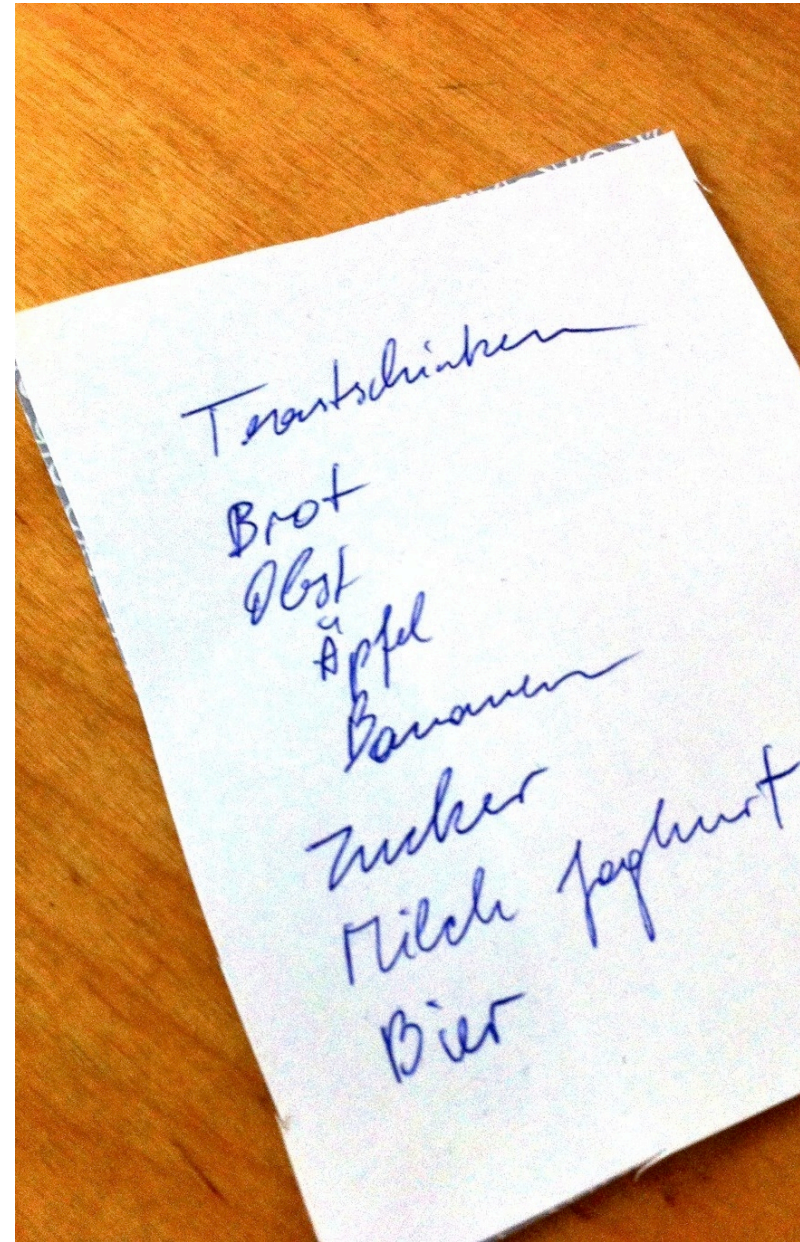 Toastschinken
Brot
Obst
Äpfel
Bananen
Zucker
Milch Joghurt
Bier